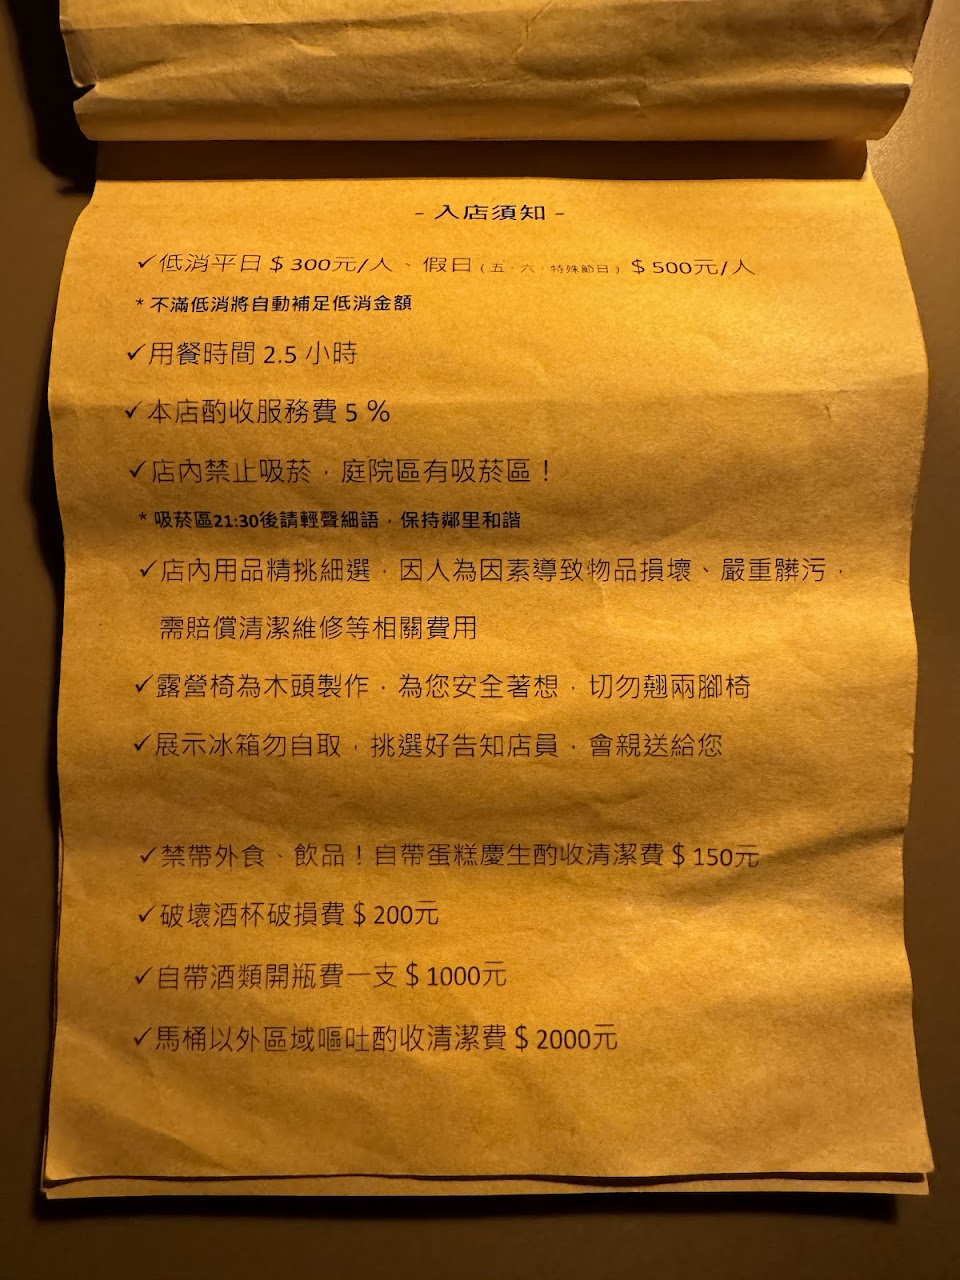 - 入店須知 -
✓低消平日 $ 300元/人、假日(五．六．特殊節日) $ 500元/人
* 不滿低消將自動補足低消金額
✓用餐時間 2.5 小時
✓本店酌收服務費 5 %
✓店內禁止吸菸，庭院區有吸菸區！
* 吸菸區21:30後請輕聲細語，保持鄰里和諧
✓店內用品精挑細選，因人為因素導致物品損壞、嚴重髒污，
需賠償清潔維修等相關費用
✓露營椅為木頭製作，為您安全著想，切勿翹兩腳椅
✓展示冰箱勿自取，挑選好告知店員，會親送給您
✓禁帶外食、飲品！自帶蛋糕慶生酌收清潔費 $ 150元
✓破壞酒杯破損費 $ 200元
✓自帶酒類開瓶費一支 $ 1000元
✓馬桶以外區域嘔吐酌收清潔費 $ 2000元